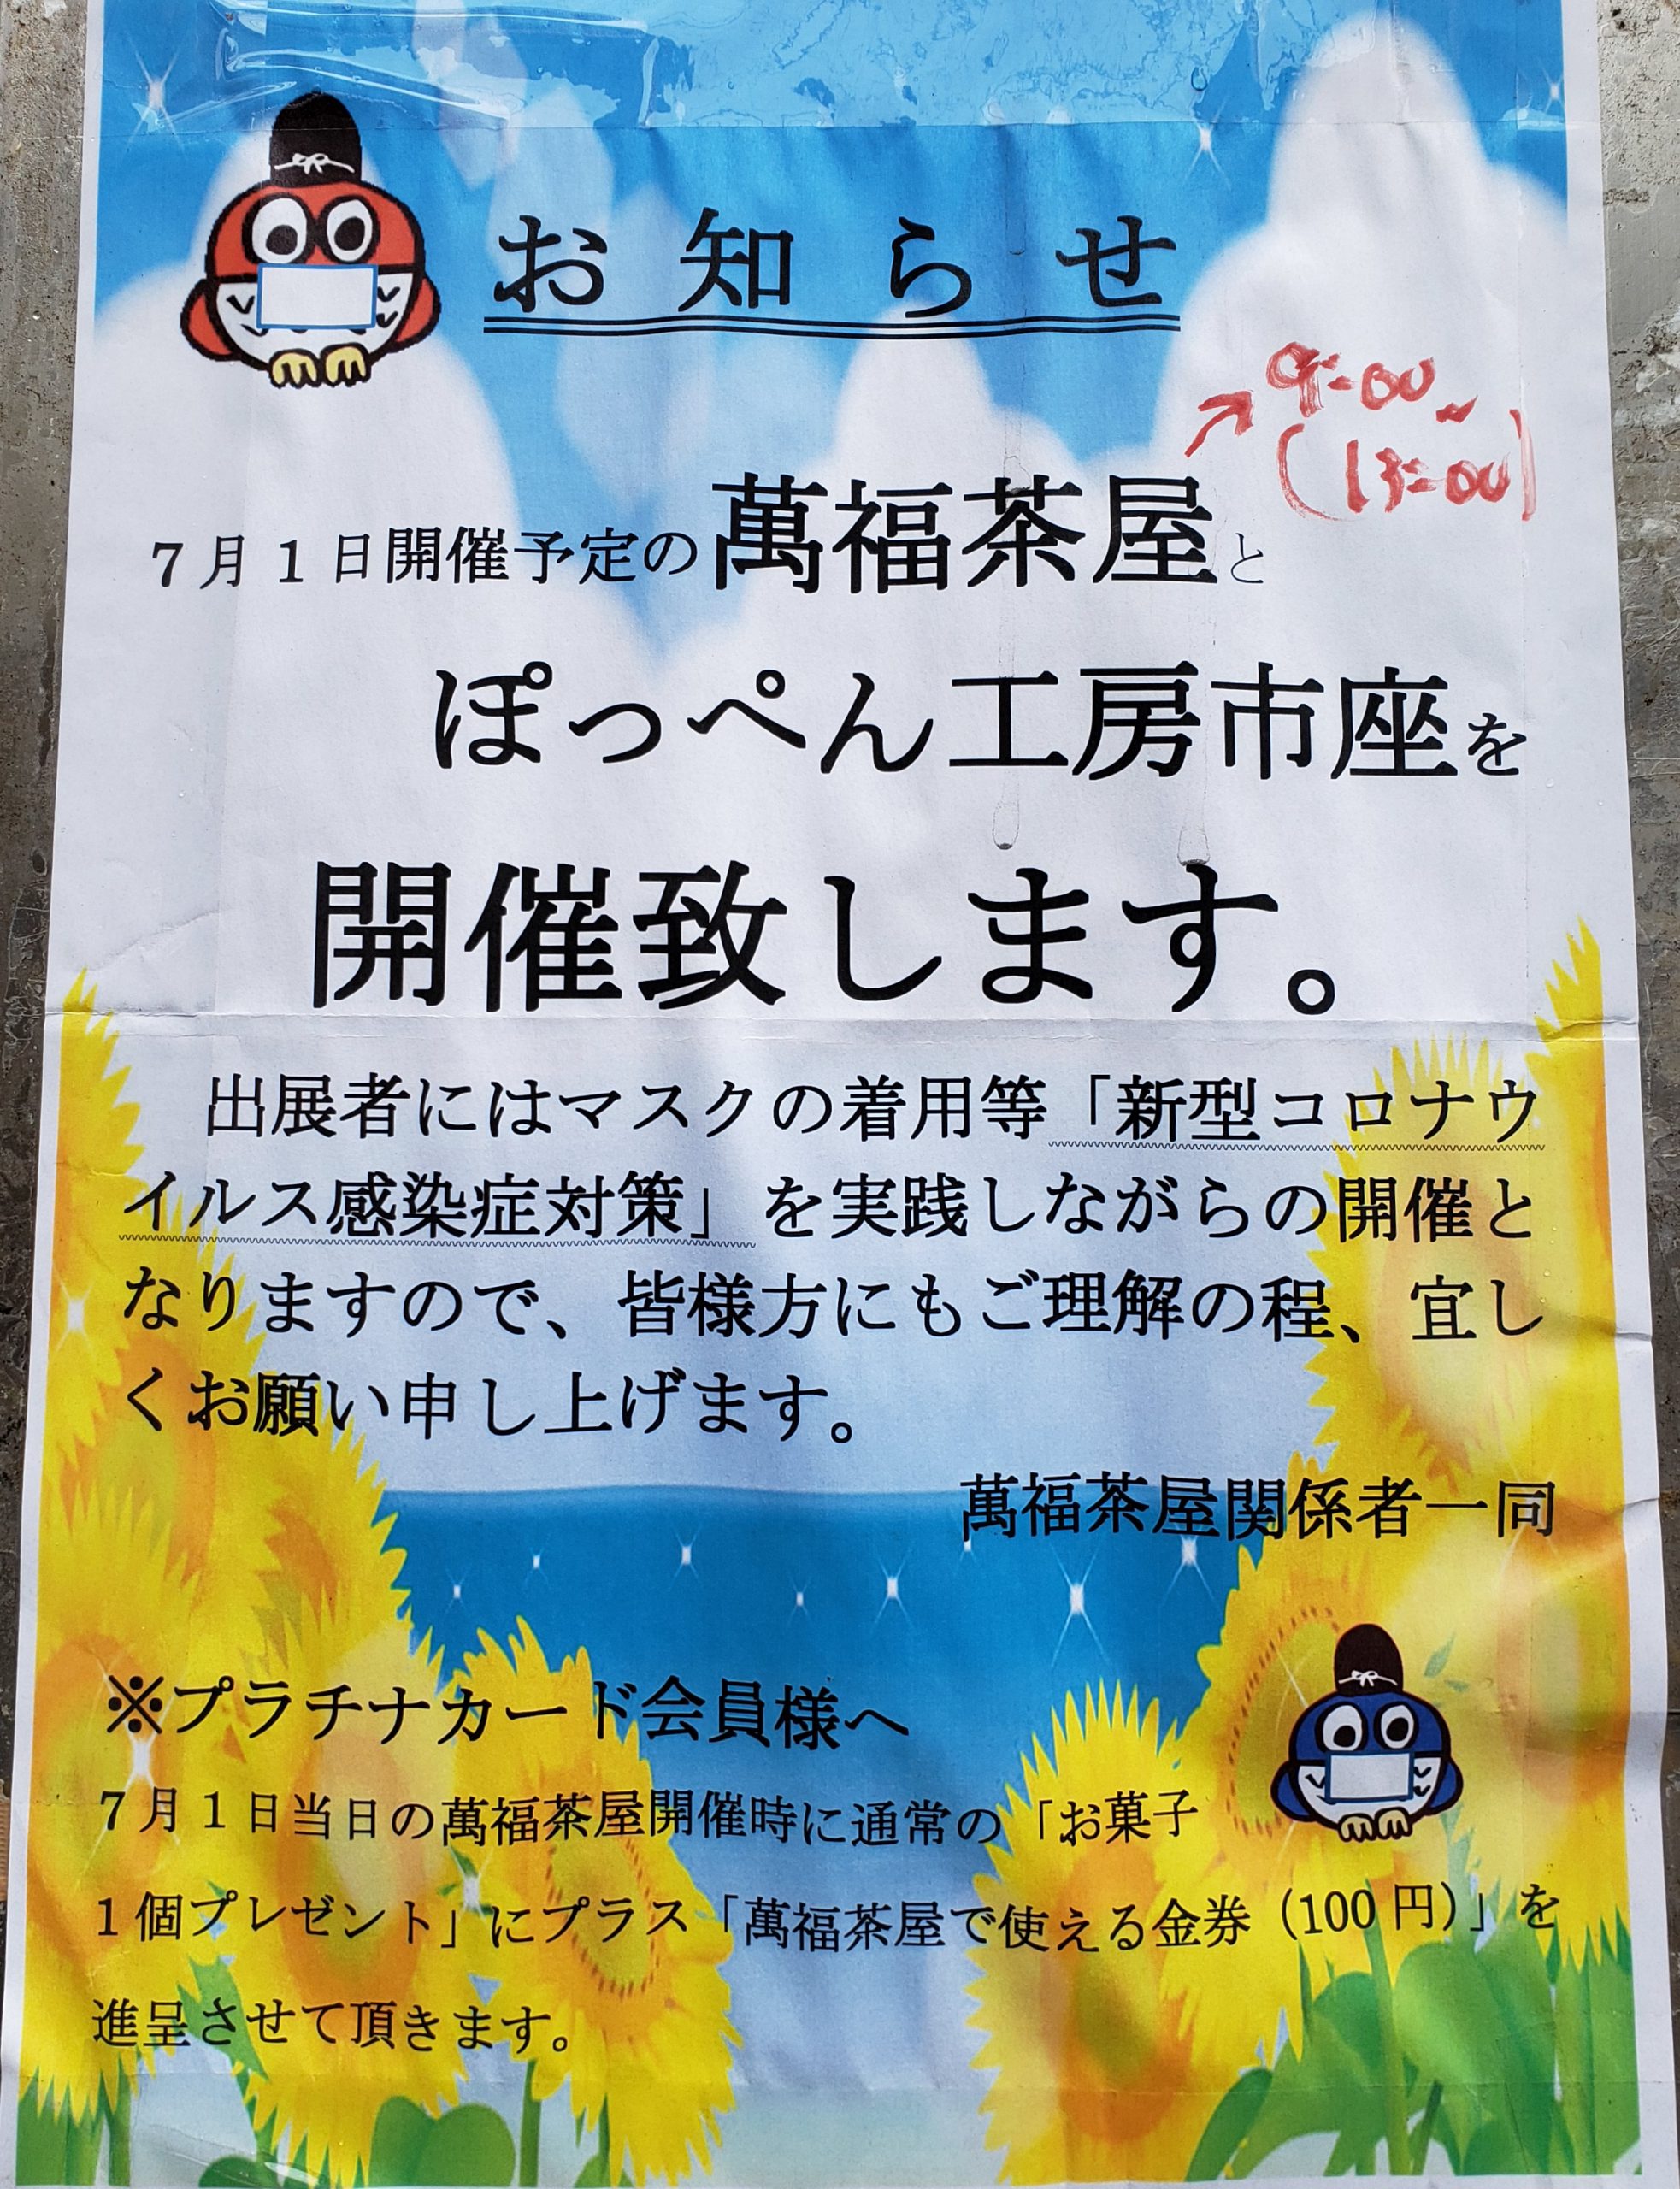 お知らせ
9:00~
(13:00)
7月1日開催予定の萬福茶屋と
ぽっぺん工房市座を
開催致します。
出展者にはマスクの着用等「新型コロナウ
イルス感染症対策」を実践しながらの開催と
なりますので、皆様方にもご理解の程、宜し
くお願い申し上げます。
萬福茶屋関係者一同
※プラチナカード会員様へ
7月1日当日の萬福茶屋開催時に通常の「お菓子
1個プレゼント」にプラス「萬福茶屋で使える金券(100円)」を
進呈させて頂きます。